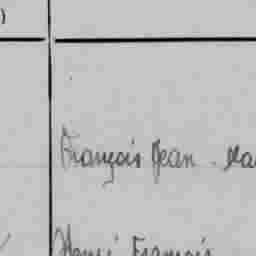 )
François Jean - Ma
Henri François